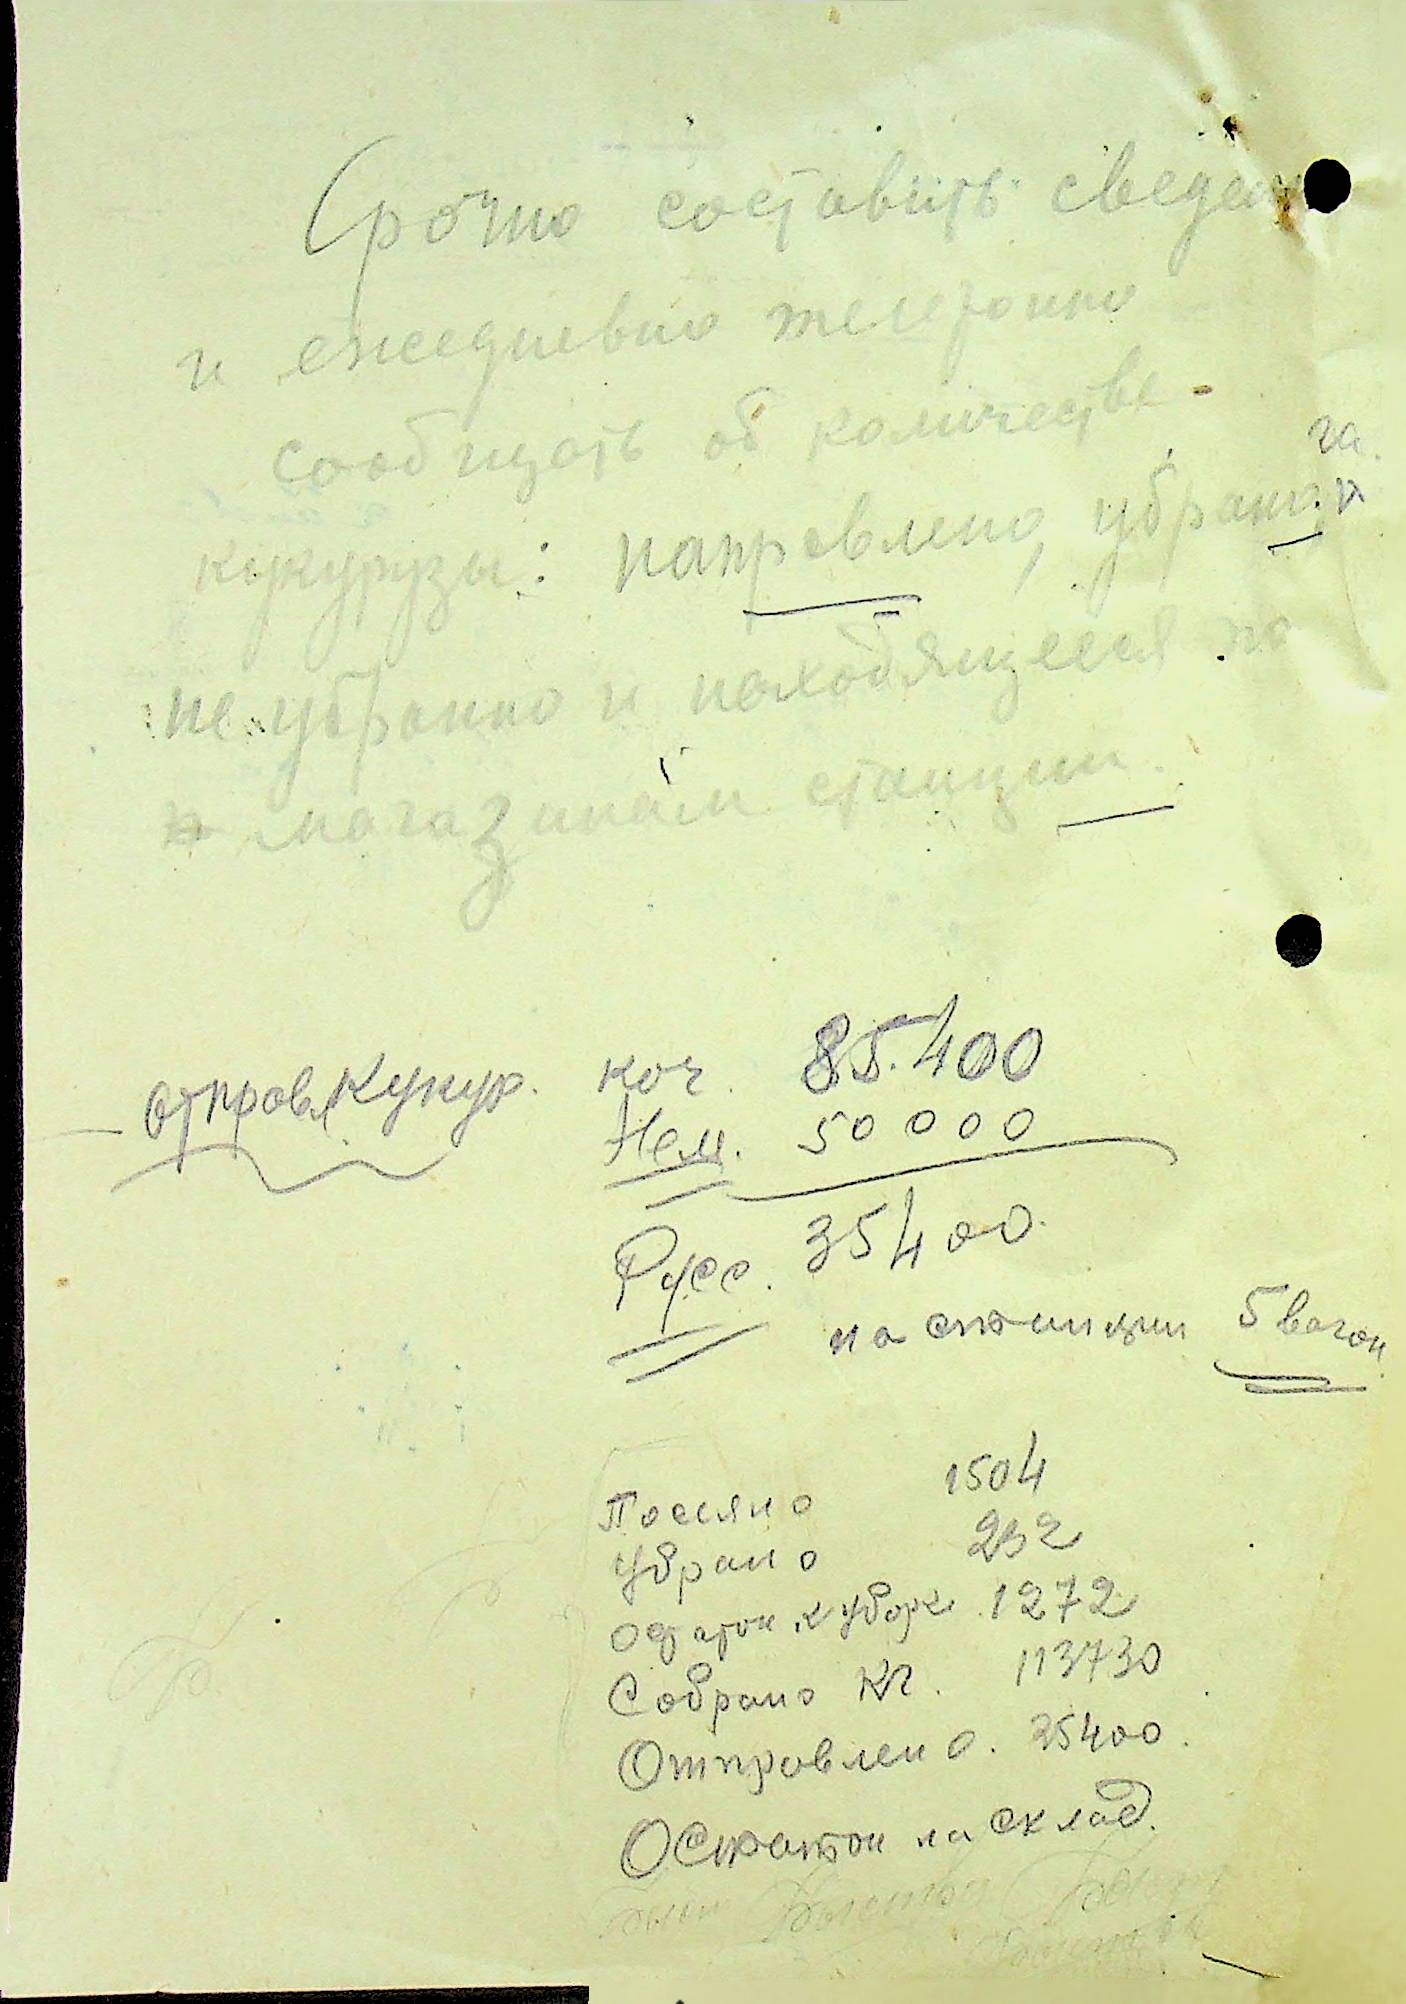 Срочно составить сведен
и ежедневно телефонно
сообщать об количестве
га.
кукурузы: направлено, убрано
не убранно и находящееся на
магазинам станции.
отправ Кукур. коч. 85.400
Нем. 50000
Русс. 35400.
на станции 5 вагон.
Посеяно 1504
Убрано 232
Остаток к уборке 1272
Собрано кг. 113730
Отправлено. 35400.
Остаток на склад.